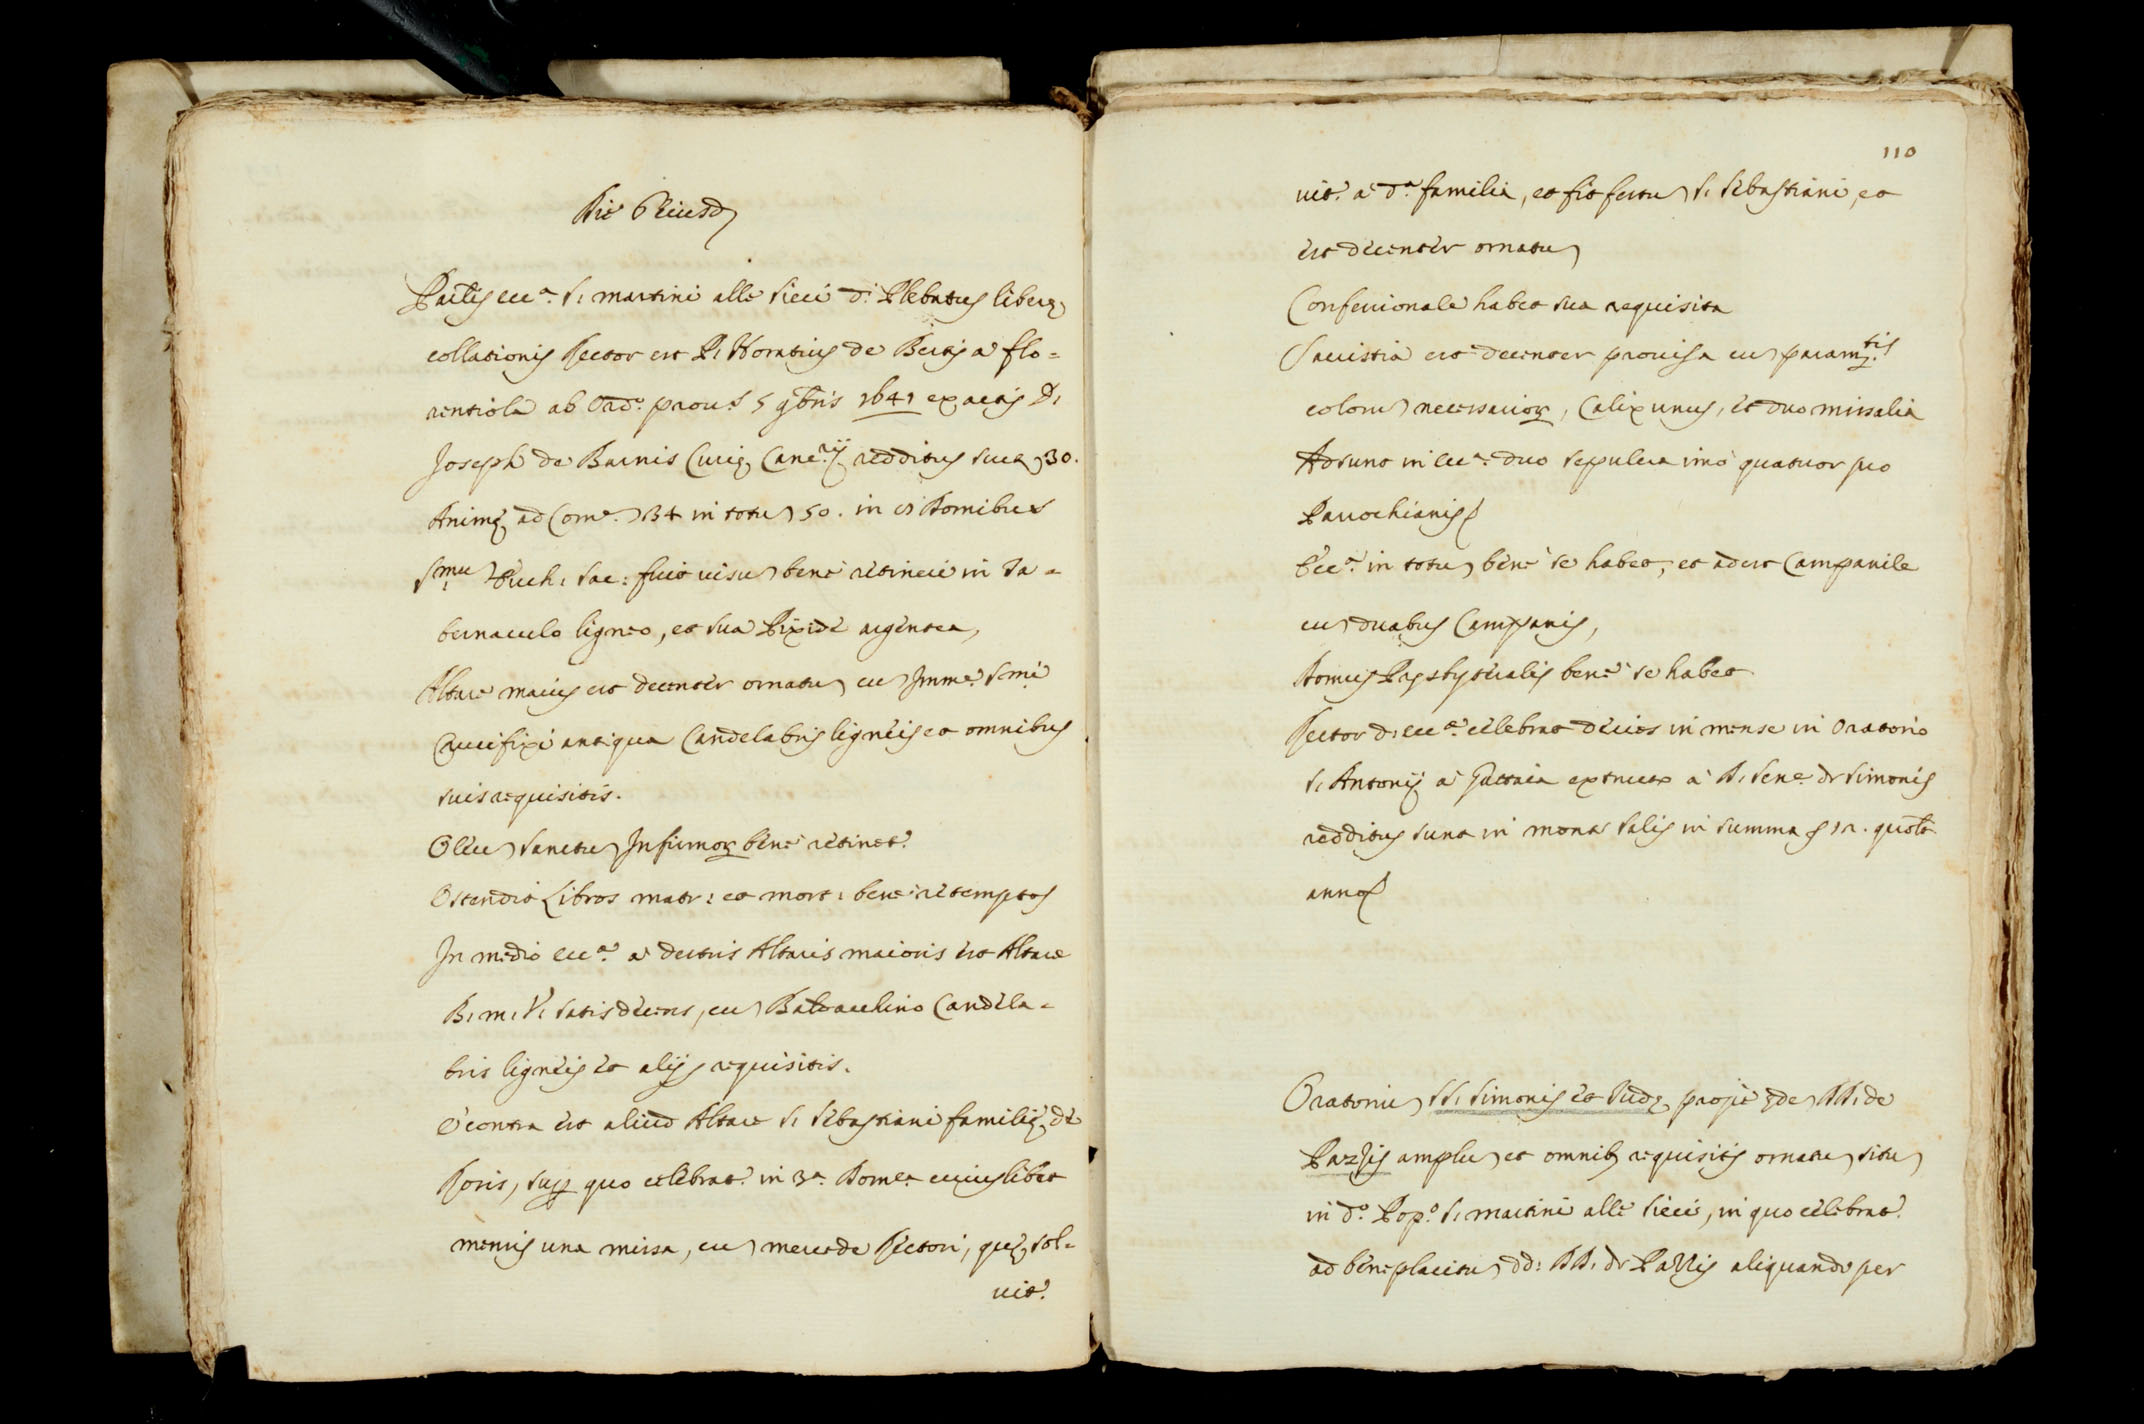 Die Eiusd.
Par.lis ecc.a S. Martini alle Sieci d.i Plebatus liberę
collationis Rector est P. Horatius de Bertis a flo=
rentiola ab Ord.o prou.s 5 9bris 1641 ex actis D.
Joseph de Barnis Curię Canc.rij redditus scut. 30.
Animę ad Com.e 134 in totu 50. in Domibus
S.mu Euch: Sac: fuit uisu bene retineri in Ta=
bernaculo ligneo, et sua Pixide argentea,
Altare maius est decenter ornatu cu Imm.e S.mi
Crucifixi antiqua Candelabris ligneis et omnibus
suis requisitis.
Oleu sanctu Infirmor. bene retinet.r
Ostendit Libros matr: et mort: bene retemptos
In medio ecc.a a dextris Altaris maioris est Altare
B. M. V. satis decens, cu Baldacchino Candela=
bris ligneis et alijs requisitis.
E contra est aliud Altare S. Sebastiani familię de
Roris, sup. quo celebrat.r in 3.a Dom.ca cuiuslibet
mensis una missa, cu mercede Rectori, quę sol=
uit.r
110
uit.r a d.a familia, et fit festu S. Sebastiani, et
est decenter ornatu
Confessionale habet sua requisita
Sacristia est decenter prouisa cu param.tis
coloru necessarior., Calix unus, et duo missalia
Adsunt in ecc.a duo sepulcra imo quatuor pro
Parochianis
Ecc.a in totu bene se habet, et adest Campanile
cu duabus Campanis,
Domus Prysbyteralis bene se habet
Rector d. ecc.a celebrat decies in mense in Oratorio
S. Antonij a Gattaia extructo a D. Sen.e de Simonis
redditus sunt in monte salis in summa 12. quolt
anno
Oratoriu SS. Simonis et Iudę prope ędes DD. de
Pazzis amplu et omnib. requisitis ornatu situ
in d.o Pop.o S. Martini alle Sieci, in quo celebrat.r
ad beneplacitu dd: DD. de Pazzis aliquando per